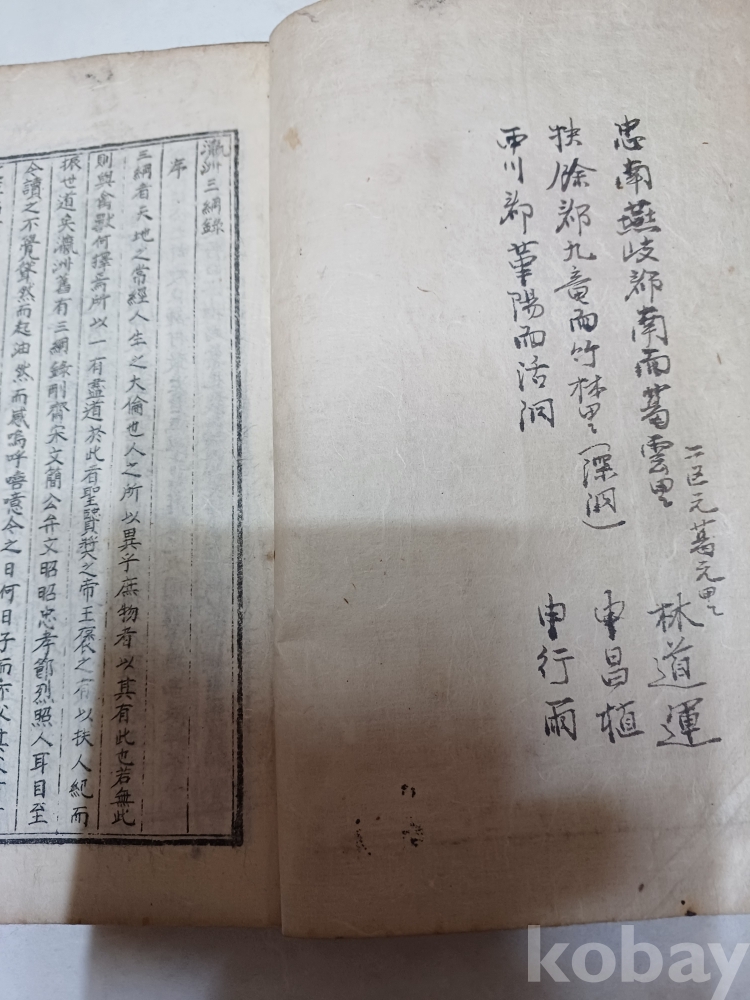 忠南燕岐郡南面葛雲里
二区元葛元里
林道運
扶餘郡九竜面竹林里(深洞)
申昌植
舒川郡華陽面活洞
申行雨
瀛洲三綱錄
序
三綱者天地之常經人生之大倫也人之所以異乎庶物者以其有此也若無此
則與禽獸何擇焉所以一有盡道於此者聖賢奬之帝王褒之有以扶人紀而
振世道矣瀛洲舊有三綱錄剛齊宋文簡公弁文昭昭忠孝節烈照人耳目至
今讀之不覺聳然而起油然而感嗚呼噫噫今之日何日子而不父其父
kobay